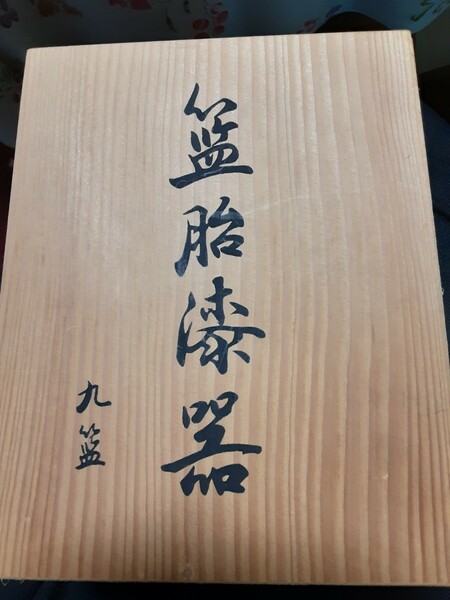 籃胎漆器
九籃